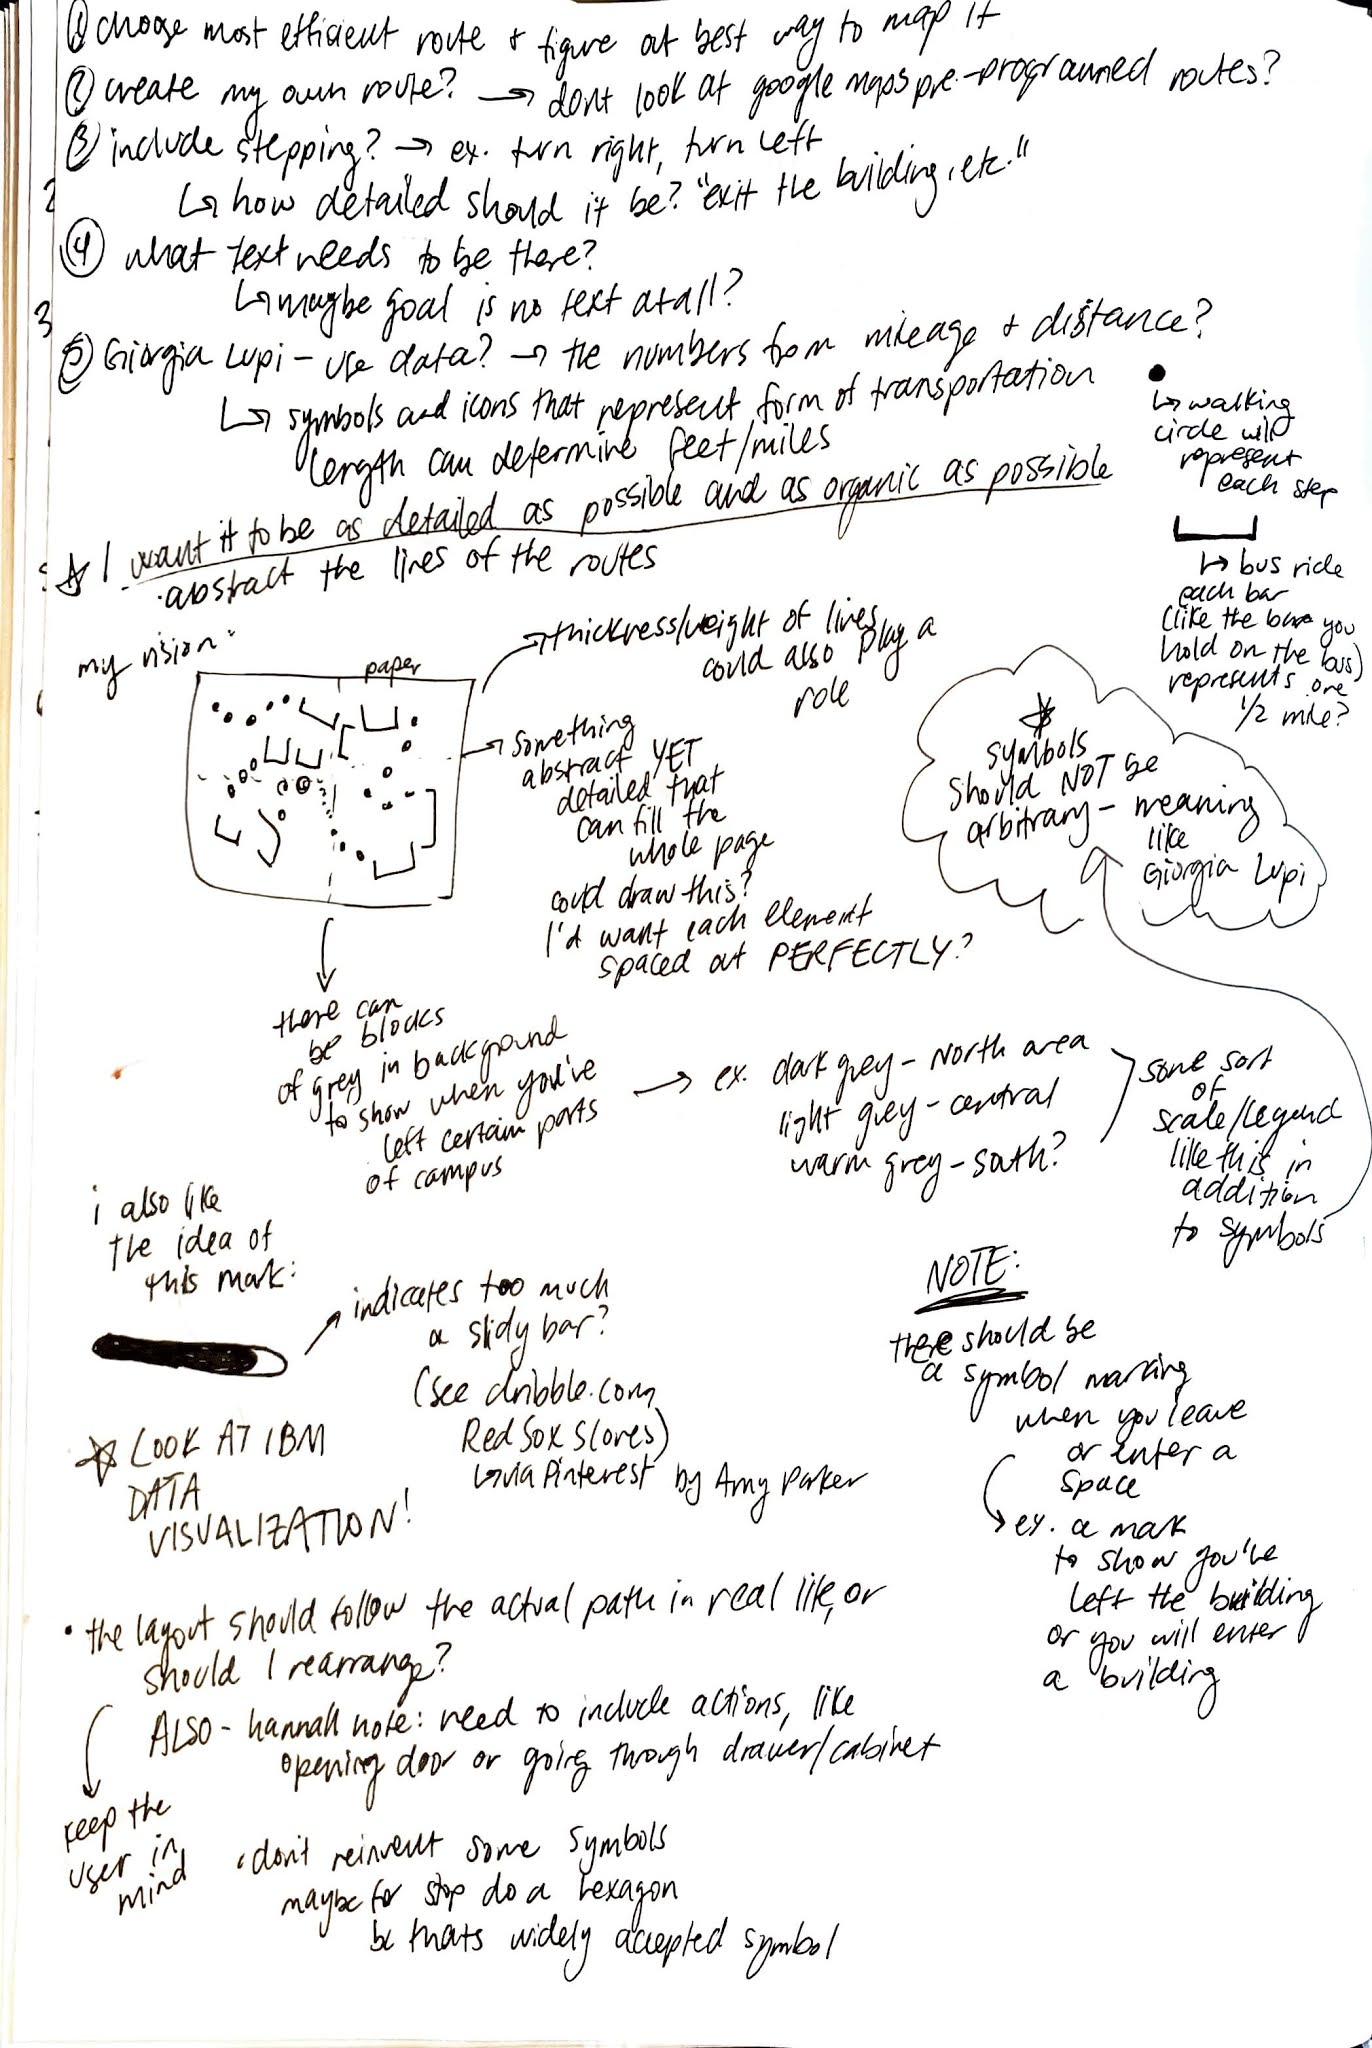 ① choose most efficient route + figure out best way to map it
② create my own route? → dont look at google maps pre-programmed routes?
③ include stepping? → ex. turn right, turn left
↳ how detailed should it be? "exit the building, etc."
④ what text needs to be there?
↳ maybe goal is no text at all?
⑤ Giorgia Lupi - use data? → the numbers from mileage + distance?
↳ symbols and icons that represent form of transportation
length can determine feet/miles
☆ I want it to be as detailed as possible and as organic as possible
· abstract the lines of the routes
2
3
↳ walking
circle will
represent
each step
↳ bus ride
each bar
(like the bars you
hold on the bus)
represents one
1/2 mile?
my vision:
paper
→ thickness/weight of lines
could also play a
role
→ something
abstract YET
detailed that
can fill the
whole page
could draw this?
I'd want each element
spaced out PERFECTLY?
☆
symbols
should NOT be
arbitrary - meaning
like
Giorgia Lupi
there can
be blocks
of grey in background
to show when you've
left certain parts
of campus
→ ex. dark grey - North area
light grey - central
warm grey - south?
some sort
of
scale/legend
like this in
addition
to symbols
i also like
the idea of
this mark:
indicates too much
a slidy bar?
(see dribble.com,
Red Sox Scores)
↳ via Pinterest by Amy Parker
☆ LOOK AT IBM
DATA
VISUALIZATION!
NOTE:
there should be
a symbol marking
when you leave
or enter a
space
→ ex. a mark
to show you've
left the building
or you will enter
a building
• the layout should follow the actual path in real life, or
should I rearrange?
ALSO - hannah note: need to include actions, like
opening door or going through drawer/cabinet
keep the
user in
mind
• don't reinvent some symbols
maybe for stop do a hexagon
bc thats widely accepted symbol